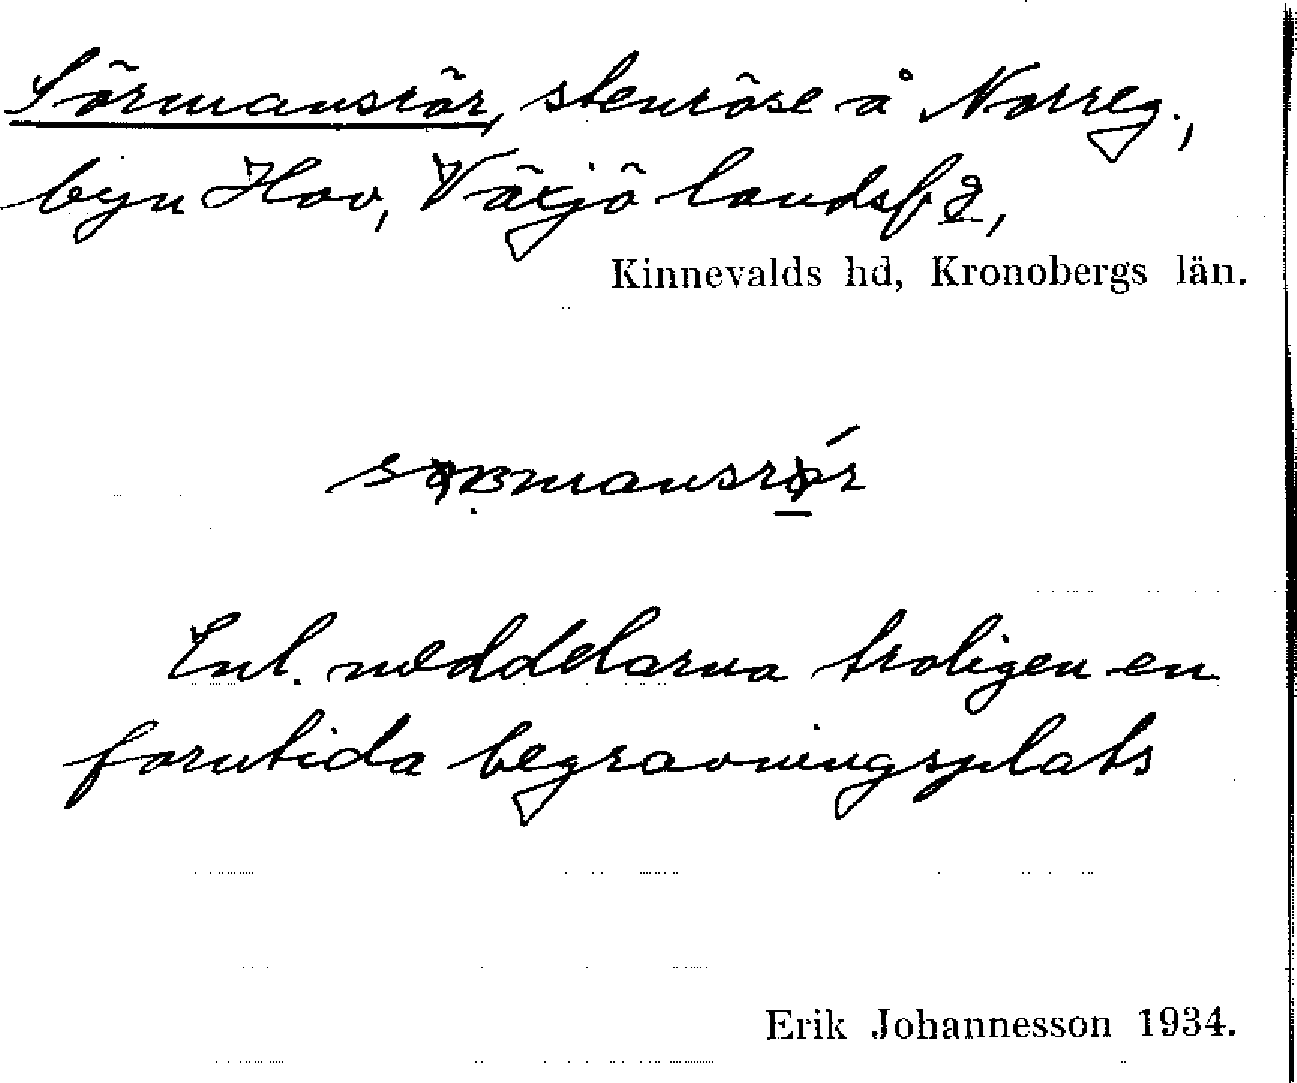 Sörmansrör, stenröse å Norreg.,
byn Hov, Växjö landsf 2,
Kinnevalds hd, Kronobergs län.
Enl. meddelarna troligen en
forntida begravningsplats
Erik Johannesson 1934.